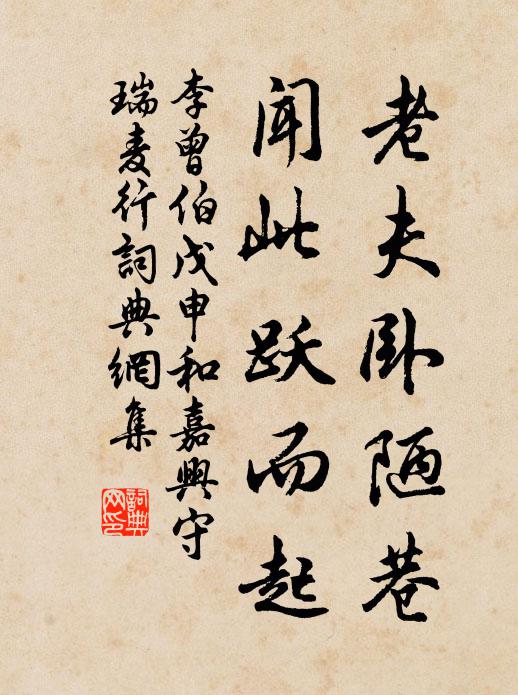 老夫卧陋巷
闻此跃而起
李曾伯戊申和嘉興守
瑞麦行詞典網集
詞典
网印